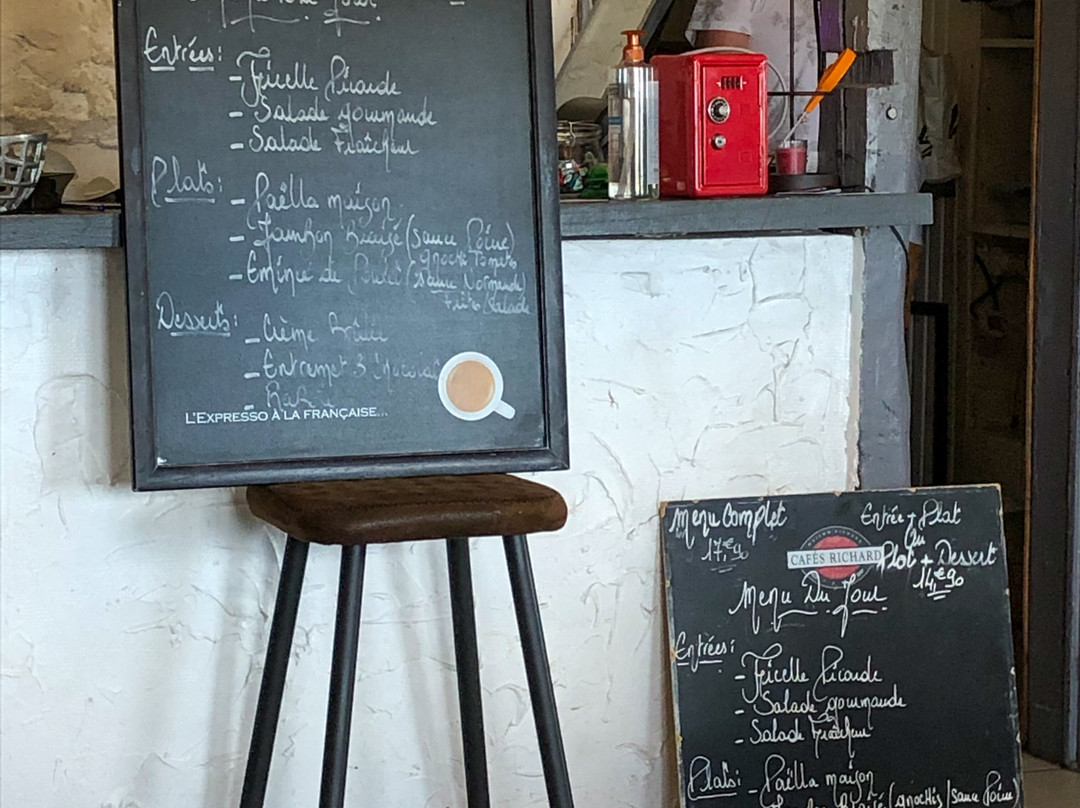 Entrées:
- Ficelle Picarde
- Salade gourmande
- Salade Fraîcheur
Plats:
- Paëlla maison
- Jambon Braisé (sauce Poivre)
gnocchi Tomates
- Emincé de Poulet (sauce Normande)
Frites Salade
Desserts:
- Crème Brûlée
- Entremet 3 Chocolat
L'EXPRESSO À LA FRANÇAISE...
Menu Complet
17,€90
Entrée + Plat
Ou
Plat + Dessert
14,€90
CAFÉS RICHARD
Menu Du Jour
Entrées:
- Ficelle Picarde
- Salade gourmande
- Salade Fraîcheur
Plats: - Paëlla maison
(gnocchis/sauce Poivre)